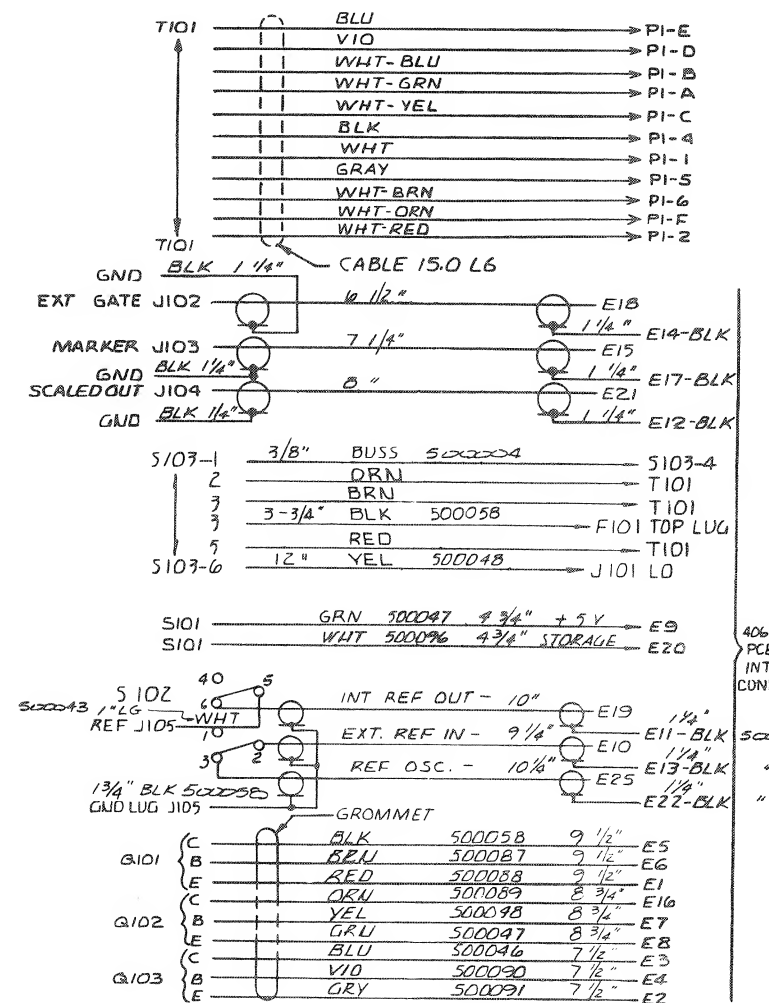 T101 BLU P1-E
VIO P1-D
WHT-BLU P1-B
WHT-GRN P1-A
WHT-YEL P1-C
BLK P1-4
WHT P1-1
GRAY P1-5
WHT-BRN P1-6
WHT-ORN P1-F
T101 WHT-RED P1-2
CABLE 15.0 LG
GND BLK 1 1/4"
EXT GATE J102 6 1/2" E18
1 1/4" E14-BLK
MARKER J103 7 1/4" E15
GND BLK 1 1/4" 1 1/4" E17-BLK
SCALED OUT J104 8" E21
GND BLK 1/4" 1 1/4" E12-BLK
S103-1 3/8" BUSS 500004 S103-4
2 ORN T101
3 BRN T101
3 3-3/4" BLK 500058 F101 TOP LUG
5 RED T101
S103-6 12" YEL 500048 J101 LO
S101 GRN 500047 4 3/4" +5V E9
S101 WHT 500096 4 3/4" STORAGE E20
406
PCB
INT
CON
4 5
S102 6 INT REF OUT - 10" E19
500043 1" LG WHT 1 1/4"
REF J105 1 EXT. REF IN - 9 1/4" E11-BLK 500
E10
3 2 1 1/4"
REF OSC. - 10 1/4" E13-BLK "
E25
1 3/4" BLK 500058 1 1/4"
GND LUG J105 E22-BLK "
GROMMET
Q101 C BLK 500058 9 1/2" E5
B BRN 500087 9 1/2" E6
E RED 500088 9 1/2" E1
Q102 C ORN 500089 8 3/4" E16
B YEL 500048 8 3/4" E7
E GRN 500047 8 3/4" E8
Q103 C BLU 500046 7 1/2" E3
B VIO 500090 7 1/2" E4
E GRY 500091 7 1/2" E2